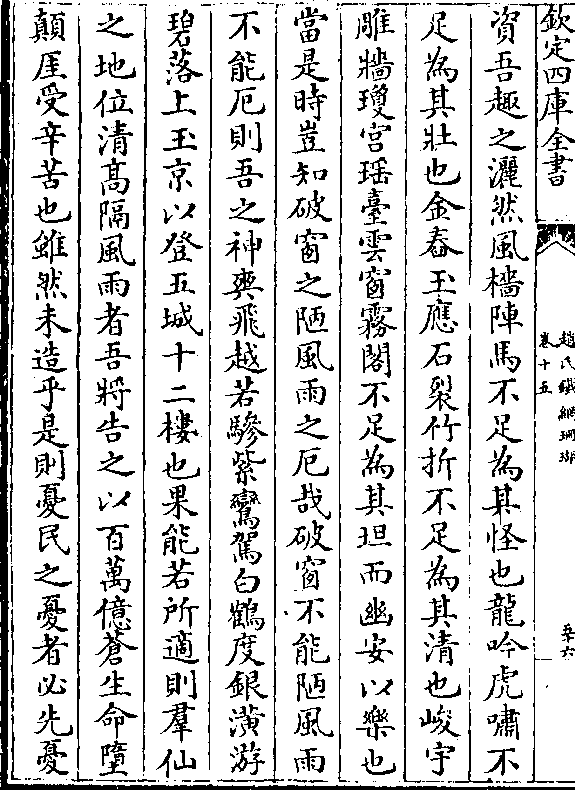 欽定四庫全書
趙氏鐵網珊瑚
卷十五
資吾趣之灑然風檣陣馬不足為其怪也龍吟虎嘯不
足為其壯也金舂玉應石裂竹折不足為其清也峻宇
雕牆瓊宫瑶臺雲窗霧閣不足為其坦而幽安以樂也
當是時豈知破窗之陋風雨之厄哉破窗不能陋風雨
不能厄則吾之神爽飛越若驂紫鸞駕白鶴度銀潢游
碧落上玉京以登五城十二樓也果能若所適則羣仙
之地位清髙隔風雨者吾將告之以百萬億蒼生命墮
顛厓受辛苦也雖然未造乎是則憂民之憂者必先憂